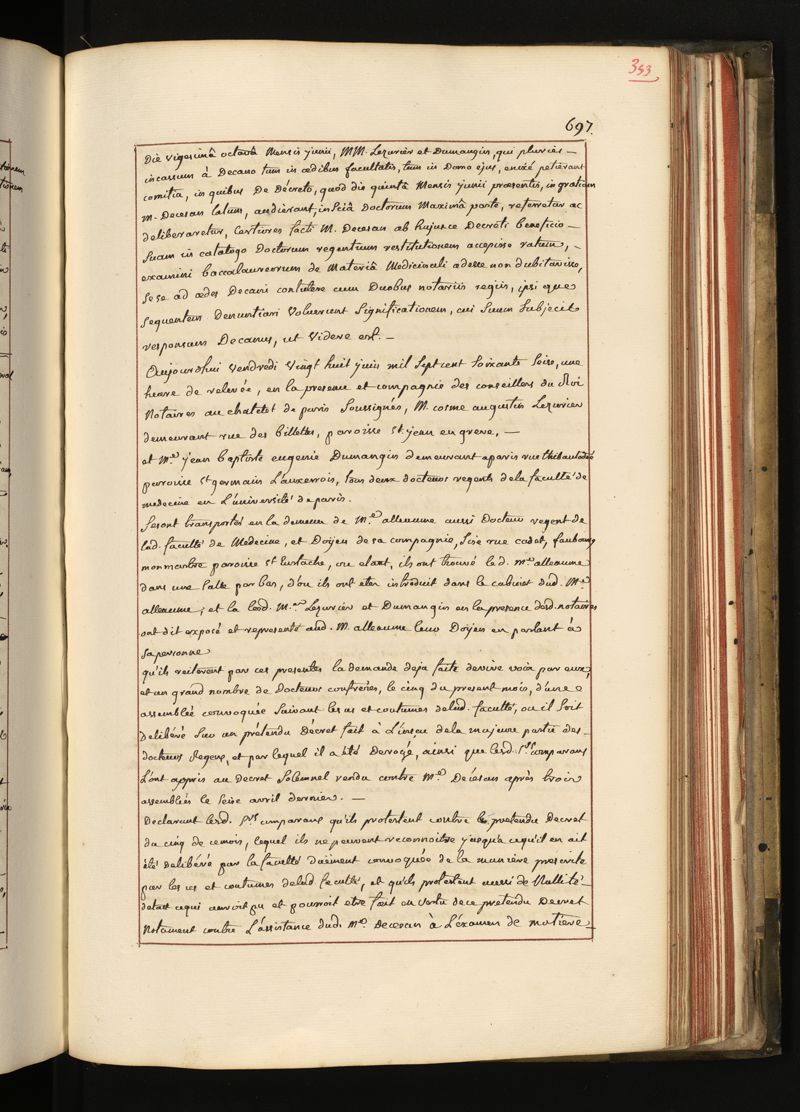 353
697.
Die vigesimâ octavâ Mensis junii, MM. Lezurier et Dumangin, qui pluriès
incassum à Decano tum in ædibus facultatis, tum in Domo ejus, enixé petierant
comitia, in quibus De Décreto, quod die quintâ Mensis junii præsentis, in gratiam
M. Decesan latum, audierant, insciâ Doctorum Maximâ parte, referretur ac
deliberarretur, certiores facti M. Decesan ab hujusce Decreti beneficio
suam in catalogo Doctorum regentium restitutionem accepisse ratum,
examini baccalaureorum de Materiâ Medicinali adesse non dubitavisse,
sese ad ædes Decani contulere cum Duobus notariis regiis, ipsi que
sequentem Denuntiari Voluerunt Significationem, cui Suum Subjecit
responsum Decanus, ut Videre est.
Aujourdhui Vendredi Vingt huit juin mil Sept cent Soixante Seize, une
heure de relevée, en la presence et compagnie des conseillers du Roi
Notaires au chatelet de paris Soussignés, M. cosme augustin Lezurier
demeurant rue des billettes, paroisse St. jean en greve,
et Me. jean baptiste eugenie Dumangin demeurant aparis rue thibautodé
paroisse St germain L'auxerrois, tous deux docteurs regents dela faculté de
medecine en L'université de paris.
Seront transportés en la demeure de Me. alleaume aussi Docteur regent de
lad. faculté de Medecine, et Doyen de sa compagnie, Sise rue cadet, faubourg
monmartre paroisse St Eustache, ou etant, ils ont trouvé led. Me. alleaume
dans une Salle par bas, d'ou ils ont eten introduit dans le cabinet dud. Me.
alleaume; et la lesd. M.rs Lezurier et Dumangin en la presence desd. notaires
ont dit exposé et representé aud. M. alleaume leur Doyen en parlant à
sa personne
qu'ils reiterent par ces presentes la demande deja faite devive voix par eux,
et un grand nombre de Docteurs confreres, le cinq du present mois, d'une
assemblée convoquée Suivant les us et coutumes delad. faculté, ou il soit
Delibéré Sur un prétendu Décret fait à L'insçu dela majeure partie des
docteurs Regens, et par lequel il a été Derogé, ainsi que lesd. Srs. comparans
L'ont appris au Decret Solemnel rendu contre Me. Decesan après trois
assemblées le Seize avril dernier.
Declarant lesd. Srs comparans qu'ils protestent contre le pretendu Decret
du cinq de cemois, lequel ils ne peuvent reconnoitre jusqu'a cequ'il en ait
été délibéré par la faculté duement convoquée de la maniere prescrite
par les us et coutumes delad. faculté, et qu'ils protestent aussi de Nullité
detout cequi auroit pu et pourroit etre fait en vertu dece pretendu Decret
Notament contre L'assistance dud. Me. Decesan à L'examen de matiere